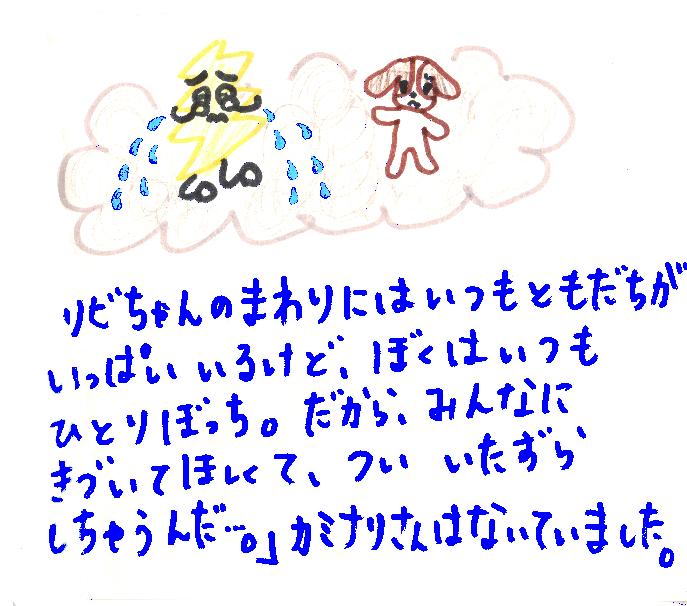 リビちゃんのまわりにはいつもともだちが
いっぱい いるけど、ぼくはいつも
ひとりぼっち。だから、みんなに
きづいてほしくて、つい いたずら
しちゃうんだ…。」カミナリさんはないていました。